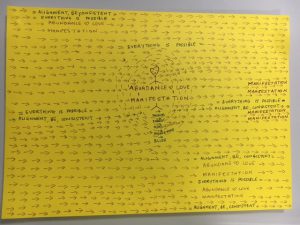 ALIGNMENT, BE, CONSISTENT
EVERYTHING IS POSSIBLE
ABUNDANCE LOVE
MANIFESTATION
EVERYTHING IS POSSIBLE
ABUNDANCE LOVE
MANIFESTATION
MANIFESTATION
MANIFESTATION
EVERYTHING IS POSSIBLE
ALIGNMENT, BE, CONSISTENT
MANIFESTATION
MANIFESTATION
EVERYTHING IS POSSIBLE
ALIGNMENT, BE, CONSISTENT
ALIGNMENT, BE, CONSISTENT
ABUNDANCE LOVE
MANIFESTATION
EVERYTHING IS POSSIBLE
ABUNDANCE LOVE
MANIFESTATION
ALIGNMENT, BE, CONSISTENT